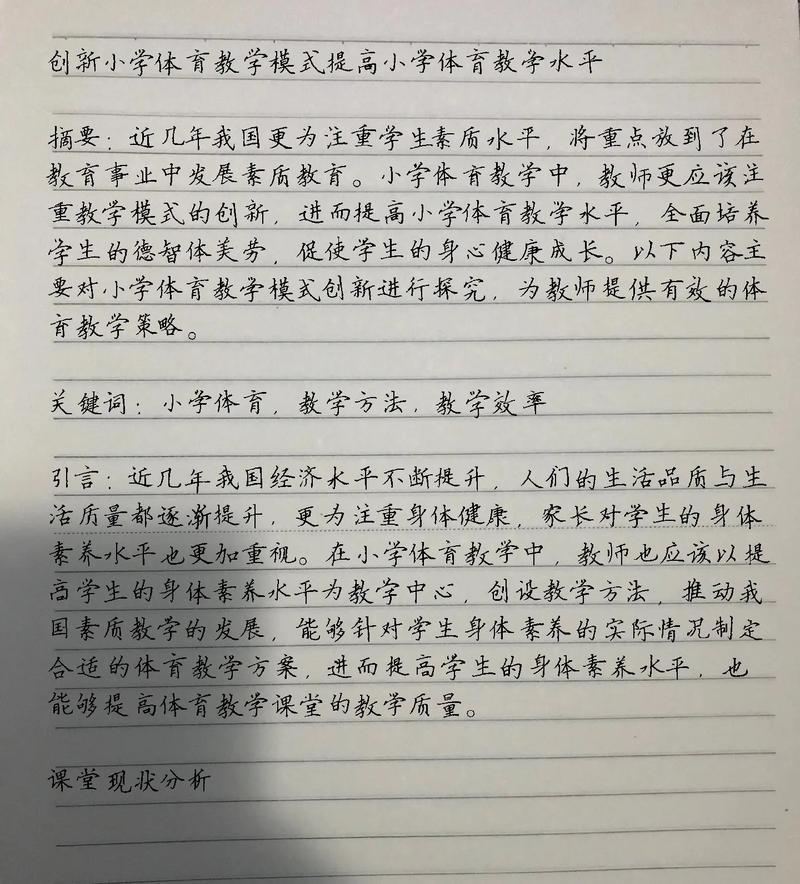 创新小学体育教学模式提高小学体育教学水平
摘要：近几年我国更为注重学生素质水平，将重点放到了在
教育事业中发展素质教育。小学体育教学中，教师更应该注
重教学模式的创新，进而提高小学体育教学水平，全面培养
学生的德智体美劳，促使学生的身心健康成长。以下内容主
要对小学体育教学模式创新进行探究，为教师提供有效的体
育教学策略。
关键词：小学体育，教学方法，教学效率
引言：近几年我国经济水平不断提升，人们的生活品质与生
活质量都逐渐提升，更为注重身体健康，家长对学生的身体
素养水平也更加重视。在小学体育教学中，教师也应该以提
高学生的身体素养水平为教学中心，创设教学方法，推动我
国素质教学的发展，能够针对学生身体素养的实际情况制定
合适的体育教学方案，进而提高学生的身体素养水平，也
能够提高体育教学课堂的教学质量。
课堂现状分析